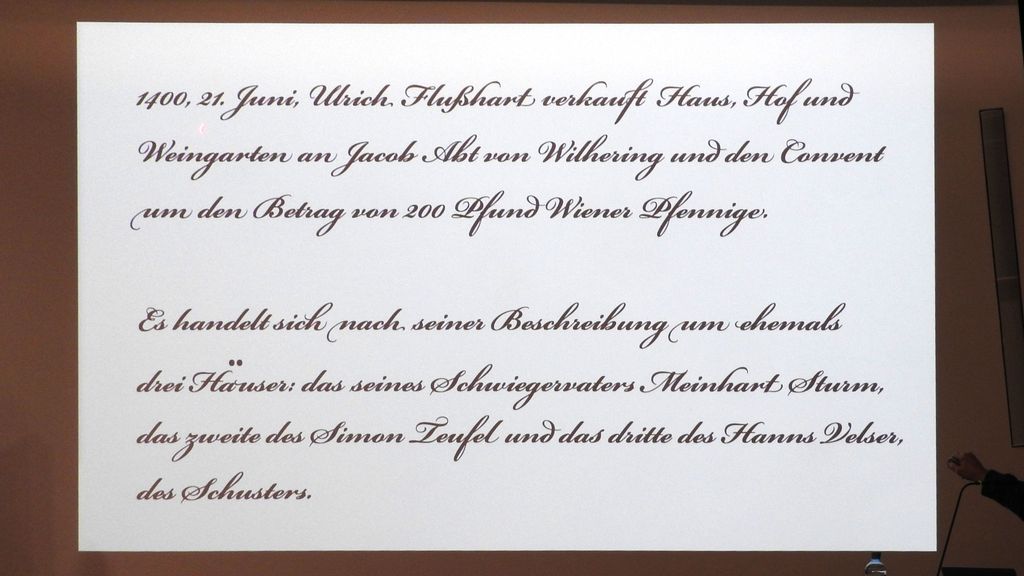 1400, 21. Juni, Ulrich Flußhart verkauft Haus, Hof und
Weingarten an Jacob Abt von Wilhering und den Convent
um den Betrag von 200 Pfund Wiener Pfennige.
Es handelt sich nach seiner Beschreibung um ehemals
drei Häuser: das seines Schwiegervaters Meinhart Sturm,
das zweite des Simon Teufel und das dritte des Hanns Velser,
des Schusters.